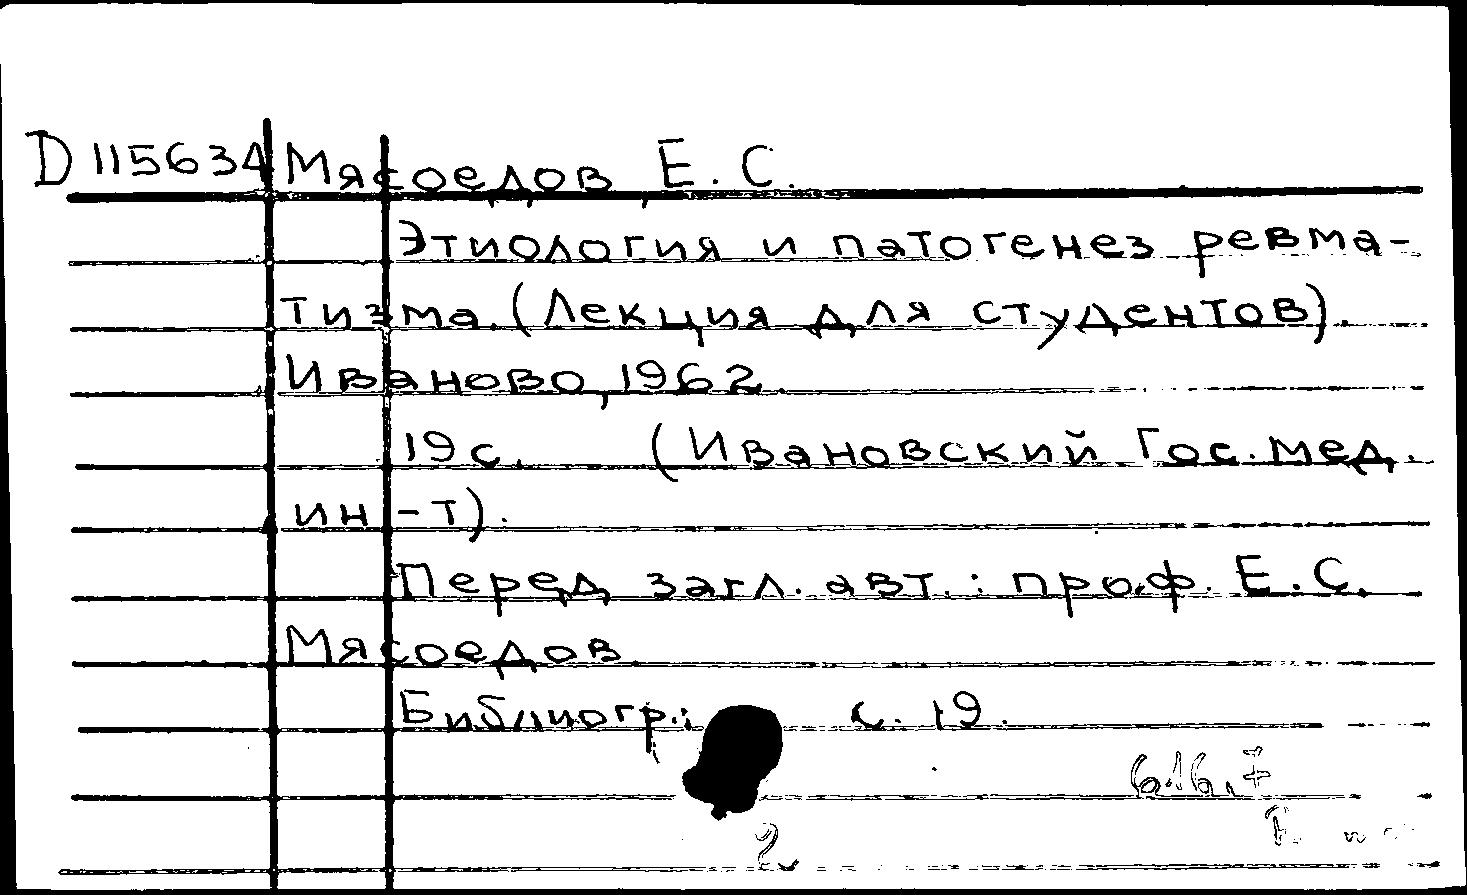 D 115634 Мясоедов, Е. С.
Этиология и патогенез ревма-
тизма. (Лекция для студентов).
Иваново, 1962.
19 с. (Ивановский Гос. мед.
ин-т).
Перед загл. авт.: проф. Е. С.
Мясоедов
Библиогр.: с. 19.
616.7
2